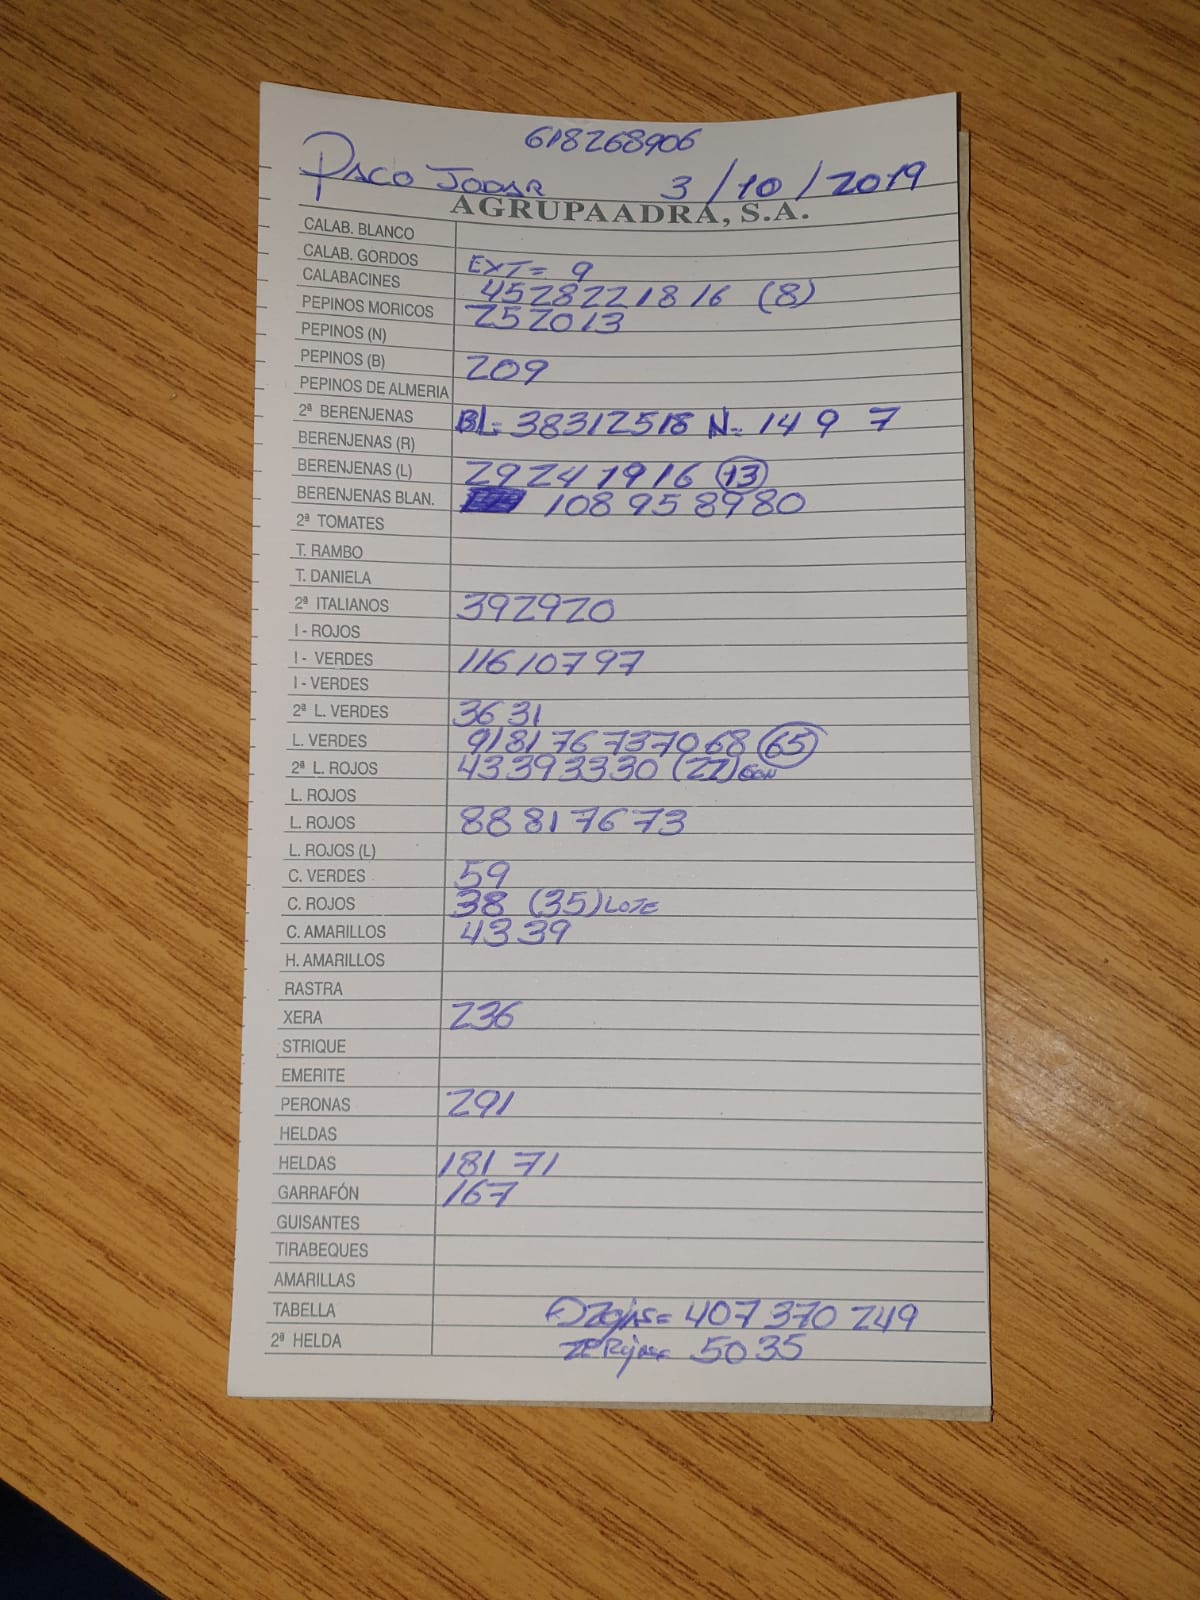 618268906
PACO JODAR 3/10/2019
AGRUPAADRA, S.A.
CALAB. BLANCO
CALAB. GORDOS EXT= 9
CALABACINES 45 28 22 18 16 (8)
PEPINOS MORICOS 25 20 13
PEPINOS (N)
PEPINOS (B) 209
PEPINOS DE ALMERIA
2ª BERENJENAS BL= 38 31 25 18 N= 14 9 7
BERENJENAS (R)
BERENJENAS (L) 29 24 19 16 (13)
BERENJENAS BLAN. 108 95 89 80
2ª TOMATES
T. RAMBO
T. DANIELA
2ª ITALIANOS 39 29 20
I - ROJOS
I - VERDES 116 107 97
I - VERDES
2ª L. VERDES 36 31
L. VERDES 91 81 76 73 70 68 (65)
2ª L. ROJOS 43 39 33 30 (22)
L. ROJOS
L. ROJOS 88 81 76 73
L. ROJOS (L)
C. VERDES 59
C. ROJOS 38 (35) LOTE
C. AMARILLOS 43 39
H. AMARILLOS
RASTRA
XERA 236
STRIQUE
EMERITE
PERONAS 291
HELDAS
HELDAS 181 71
GARRAFÓN 167
GUISANTES
TIRABEQUES
AMARILLAS
TABELLA 407 370 249
2ª HELDA 50 35